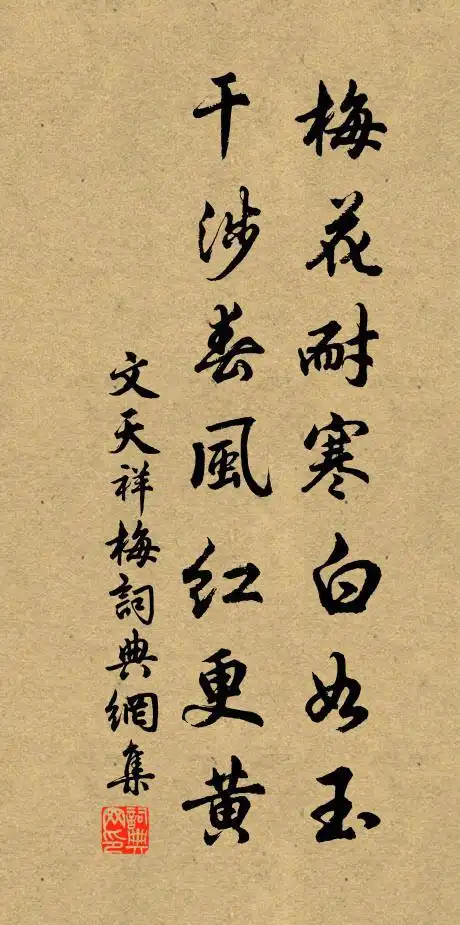 梅花耐寒白如玉
干涉春風红更黄
文天祥梅詞典網集
詞典網印